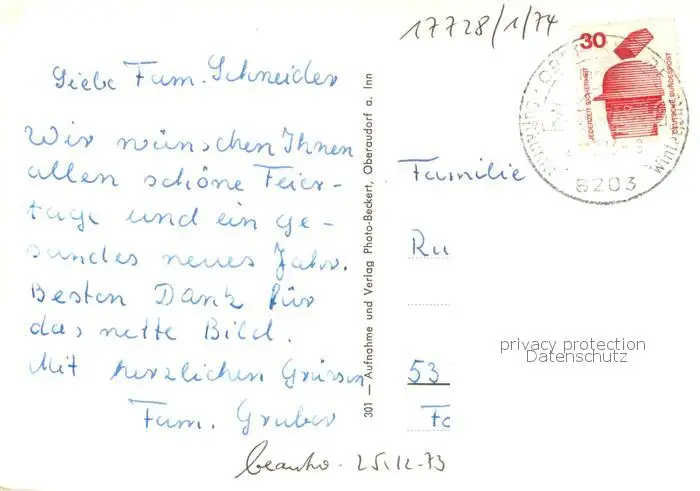 17728/1/74
30
JEDERZEIT SICHERHEIT
DEUTSCHE BUNDESPOST
8203
Liebe Fam. Schneider
Wir wünschen Ihnen
allen schöne Feier-
tage und ein ge-
sandes neues Jahr.
Besten Dank für
das nette Bild.
Mit herzlichen Grüssen
Fam. Gruber
301 — Aufnahme und Verlag Photo-Beckert, Oberaudorf a. Inn
Familie
Ru
53
privacy protection
Datenschutz
25.12.73